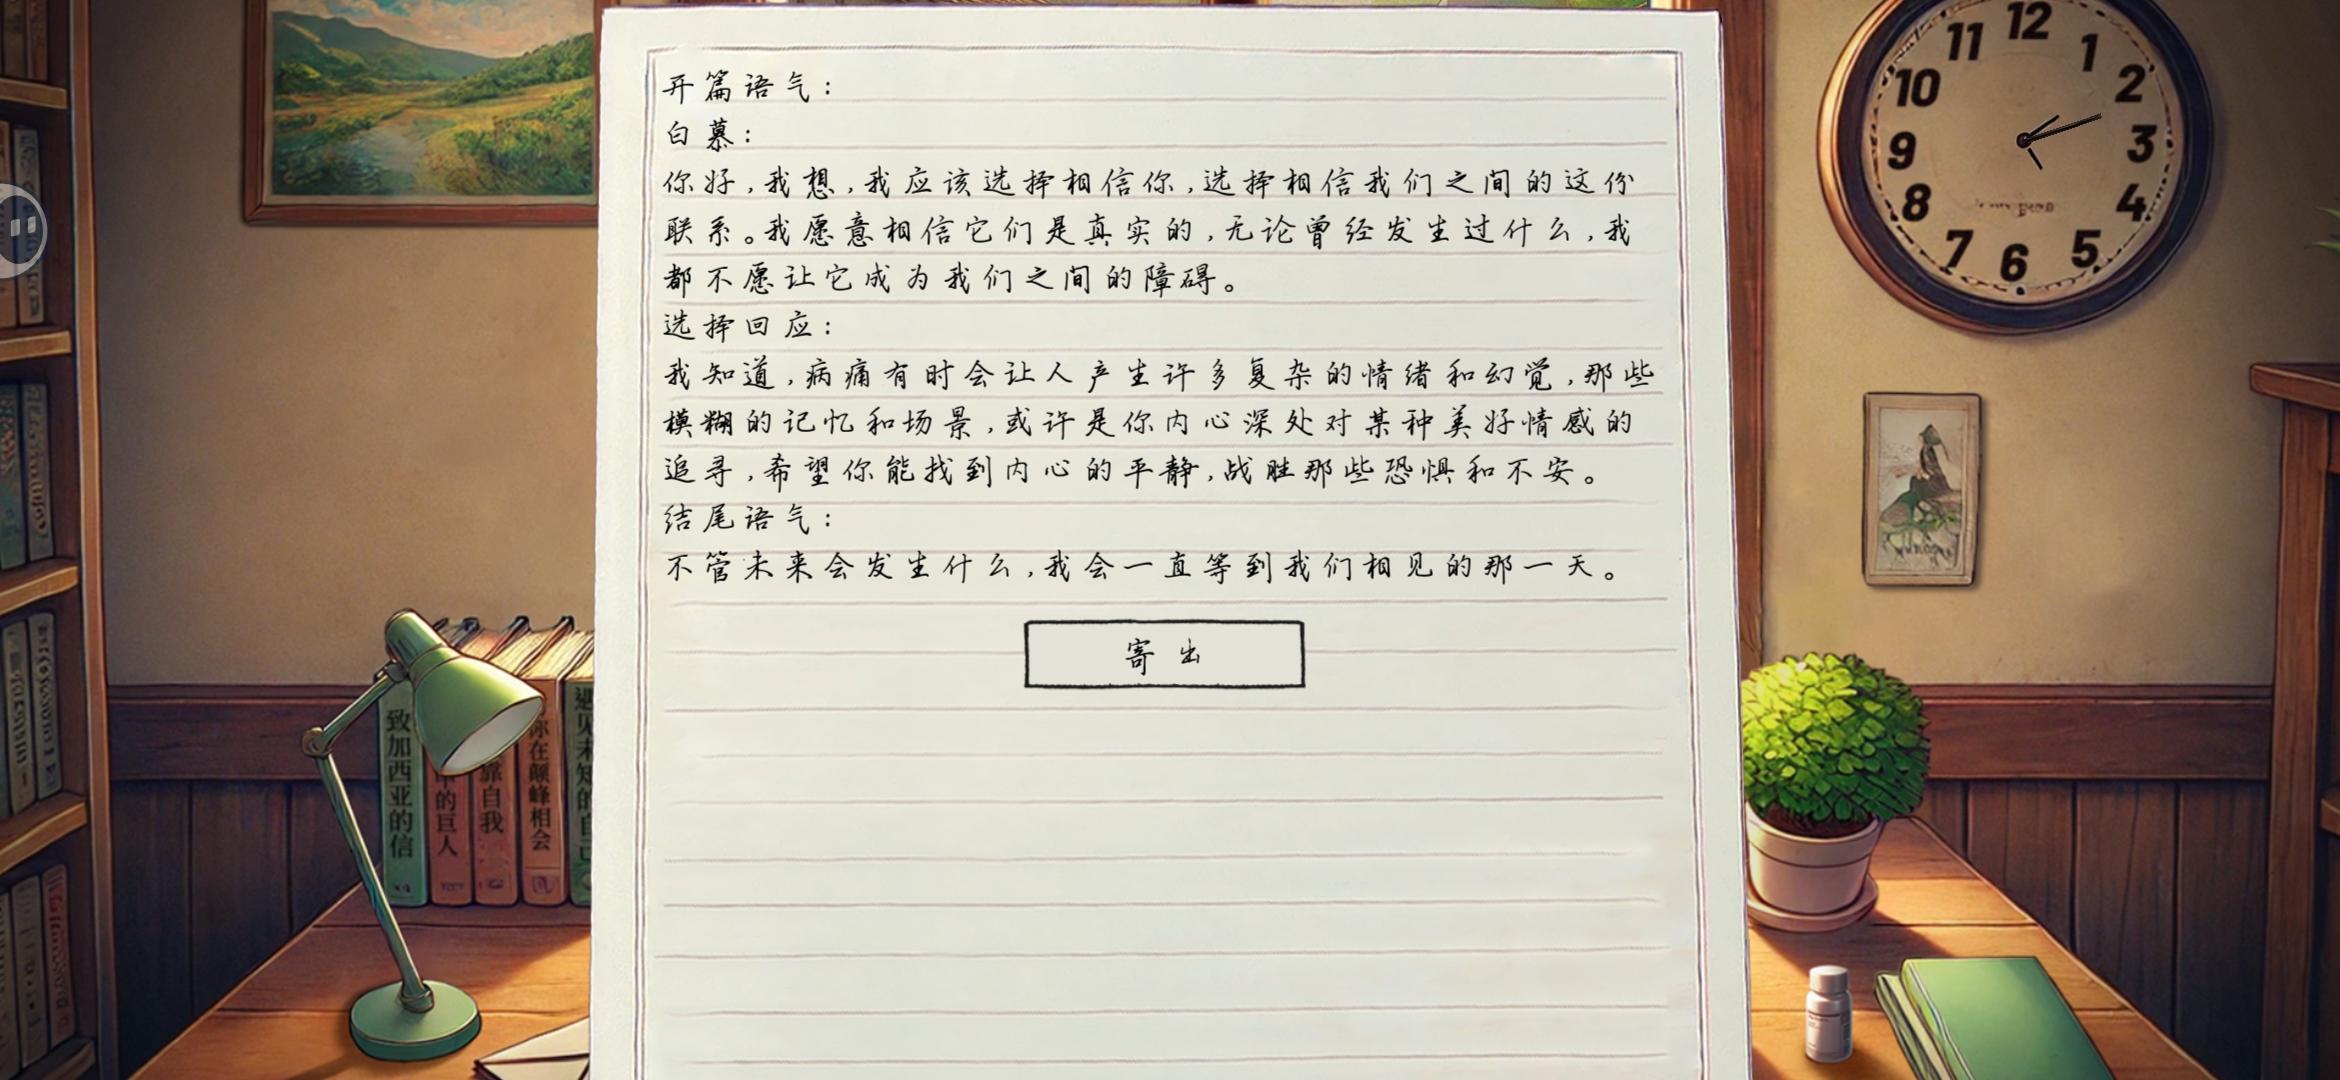 开篇语气:
白慕:
你好,我想,我应该选择相信你,选择相信我们之间的这份
联系。我愿意相信它们是真实的,无论曾经发生过什么,我
都不愿让它成为我们之间的障碍。
选择回应:
我知道,病痛有时会让人产生许多复杂的情绪和幻觉,那些
模糊的记忆和场景,或许是你内心深处对某种美好情感的
追寻,希望你能找到内心的平静,战胜那些恐惧和不安。
结尾语气:
不管未来会发生什么,我会一直等到我们相见的那一天。
寄出
致加西亚的信
中的巨人
靠自我
你在颠峰相会
遇见未知的自己
12
1
2
3
4
5
6
7
8
9
10
11